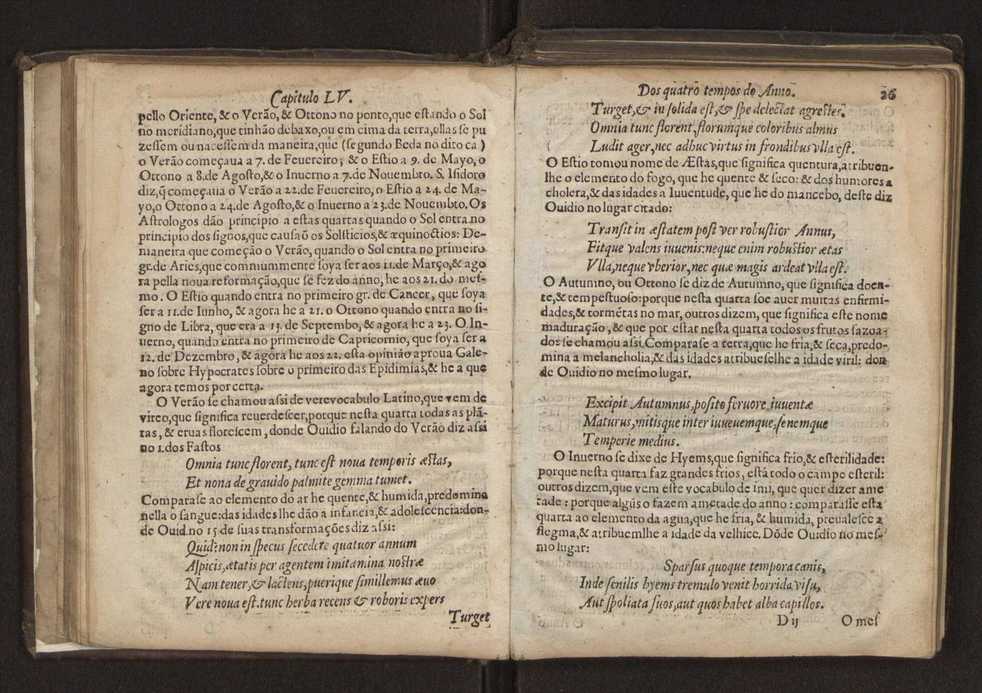 Capitulo LV.
pello Oriente, & o Verão, & Ottono no ponto, que estando o Sol
no meridiano, que tinhão debaxo, ou em cima da terra, ellas se pu
zessem ou nacessem da maneira, que (segundo Beda no dito ca)
o Verão começaua a 7. de Feuereiro; & o Estio a 9. de Mayo, o
Ottono a 8. de Agosto, & o Inuerno a 7. de Nouembro. S. Isidoro
diz, q̃ começaua o Verão a 22. de Feuereiro, o Estio a 24. de Ma-
yo, o Ottono a 24. de Agosto, & o Inuerno a 23. de Nouembro. Os
Astrologos dão principio a estas quartas quando o Sol entra no
principio dos signos, que causaõ os Solsticios, & æquinoctios: De-
maneira que começão o Verão, quando o Sol entra no primeiro
gr. de Aries, que communmente soya ser aos 11. de Março, & ago
ra pella noua reformação, que se fez do anno, he aos 21. do mes-
mo. O Estio quando entra no primeiro gr. de Cancer, que soya
ser a 11. de Iunho, & agora he a 21. o Ottono quando entra no si-
gno de Libra, que era a 13. de Septembo, & agora he a 23. O In-
uerno, quando entra no primeiro de Capricornio, que soya ser a
12. de Dezembro, & agora he aos 22. esta opinião aproua Gale-
no sobre Hypocrates sobre o primeiro das Epidimias, & he a que
agora temos por certa.
O Verão se chamou assi de vere vocabulo Latino, que vem de
vireo, que significa reuerdescer, porque nesta quarta todas as plã-
tas, & eruas florescem, donde Ouidio falando do Verão diz assi
no 1. dos Fastos
Omnia tunc florent, tunc est noua temporis æstas,
Et nona de grauido palmite gemma tumet.
Comparase ao elemento do ar he quente, & humida, predomina
nella o sangue: das idades lhe dão a infancia, & adolescencia: don-
de Ouid. no 15. de suas transformações diz assi:
Quid: non in species secedere quatuor annum
Aspicis, ætatis per agentem imitamina nostræ
Nam tener, & lactens, puerique simillemus æuo
Vere noua est. tunc herba recens & roboris expers
Turget
Dos quatro tempos do Anno. 26
Turget, & in solida est, & spe delectat agrestes.
Omnia tunc florent, florumque coloribus almus
Ludit ager, nec adhuc virtus in frondibus vlla est.
O Estio tomou nome de Æstas, que significa quentura, atribuen-
lhe o elemento do fogo, que he quente & seco: & dos humores a
cholera, & das idades a Iuuentude, que he do mancebo, deste diz
Ouidio no lugar citado:
Transit in æstatem post ver robustior Annus,
Fitque valens iuuenis: neque enim robustior ætas
Vlla, neque vberior, nec quæ magis ardeat vlla est.
O Autumno, ou Ottono se diz de Autumno, que significa doen-
te, & tempestuoso: porque nesta quarta soe auer muitas enfirmi-
dades, & tormẽtas no mar, outros dizem, que significa este nome
maduração, & que por estar nesta quarta todos os frutos sazoa-
dos se chamou assi. Comparase a terra, que he fria, & seca, predo-
mina a melancholia, & das idades atribueselhe a idade viril: don
de Ouidio no mesmo lugar.
Excipit Autumnus, posito feruore iuuentæ
Maturus, mitisque inter iuueuemque, senemque
Temperie medius.
O Inuerno se dixe de Hyems, que significa frio, & esterilidade:
porque nesta quarta faz grandes frios, está todo o campo esteril:
outros dizem, que vem este vocabulo de Imi, que quer dizer ame
tade: porque algũs o fazem ametade do anno: comparasse esta
quarta ao elemento da agua, que he fria, & humida, preualesce a
flegma, & atribuemlhe a idade da velhice. Dõde Ouidio no mes-
mo lugar:
Sparsus quoque tempora canis,
Inde senilis hyems tremulo venit horrida visu,
Aut spoliata suos, aut quos habet alba capillos.
D ij O mes